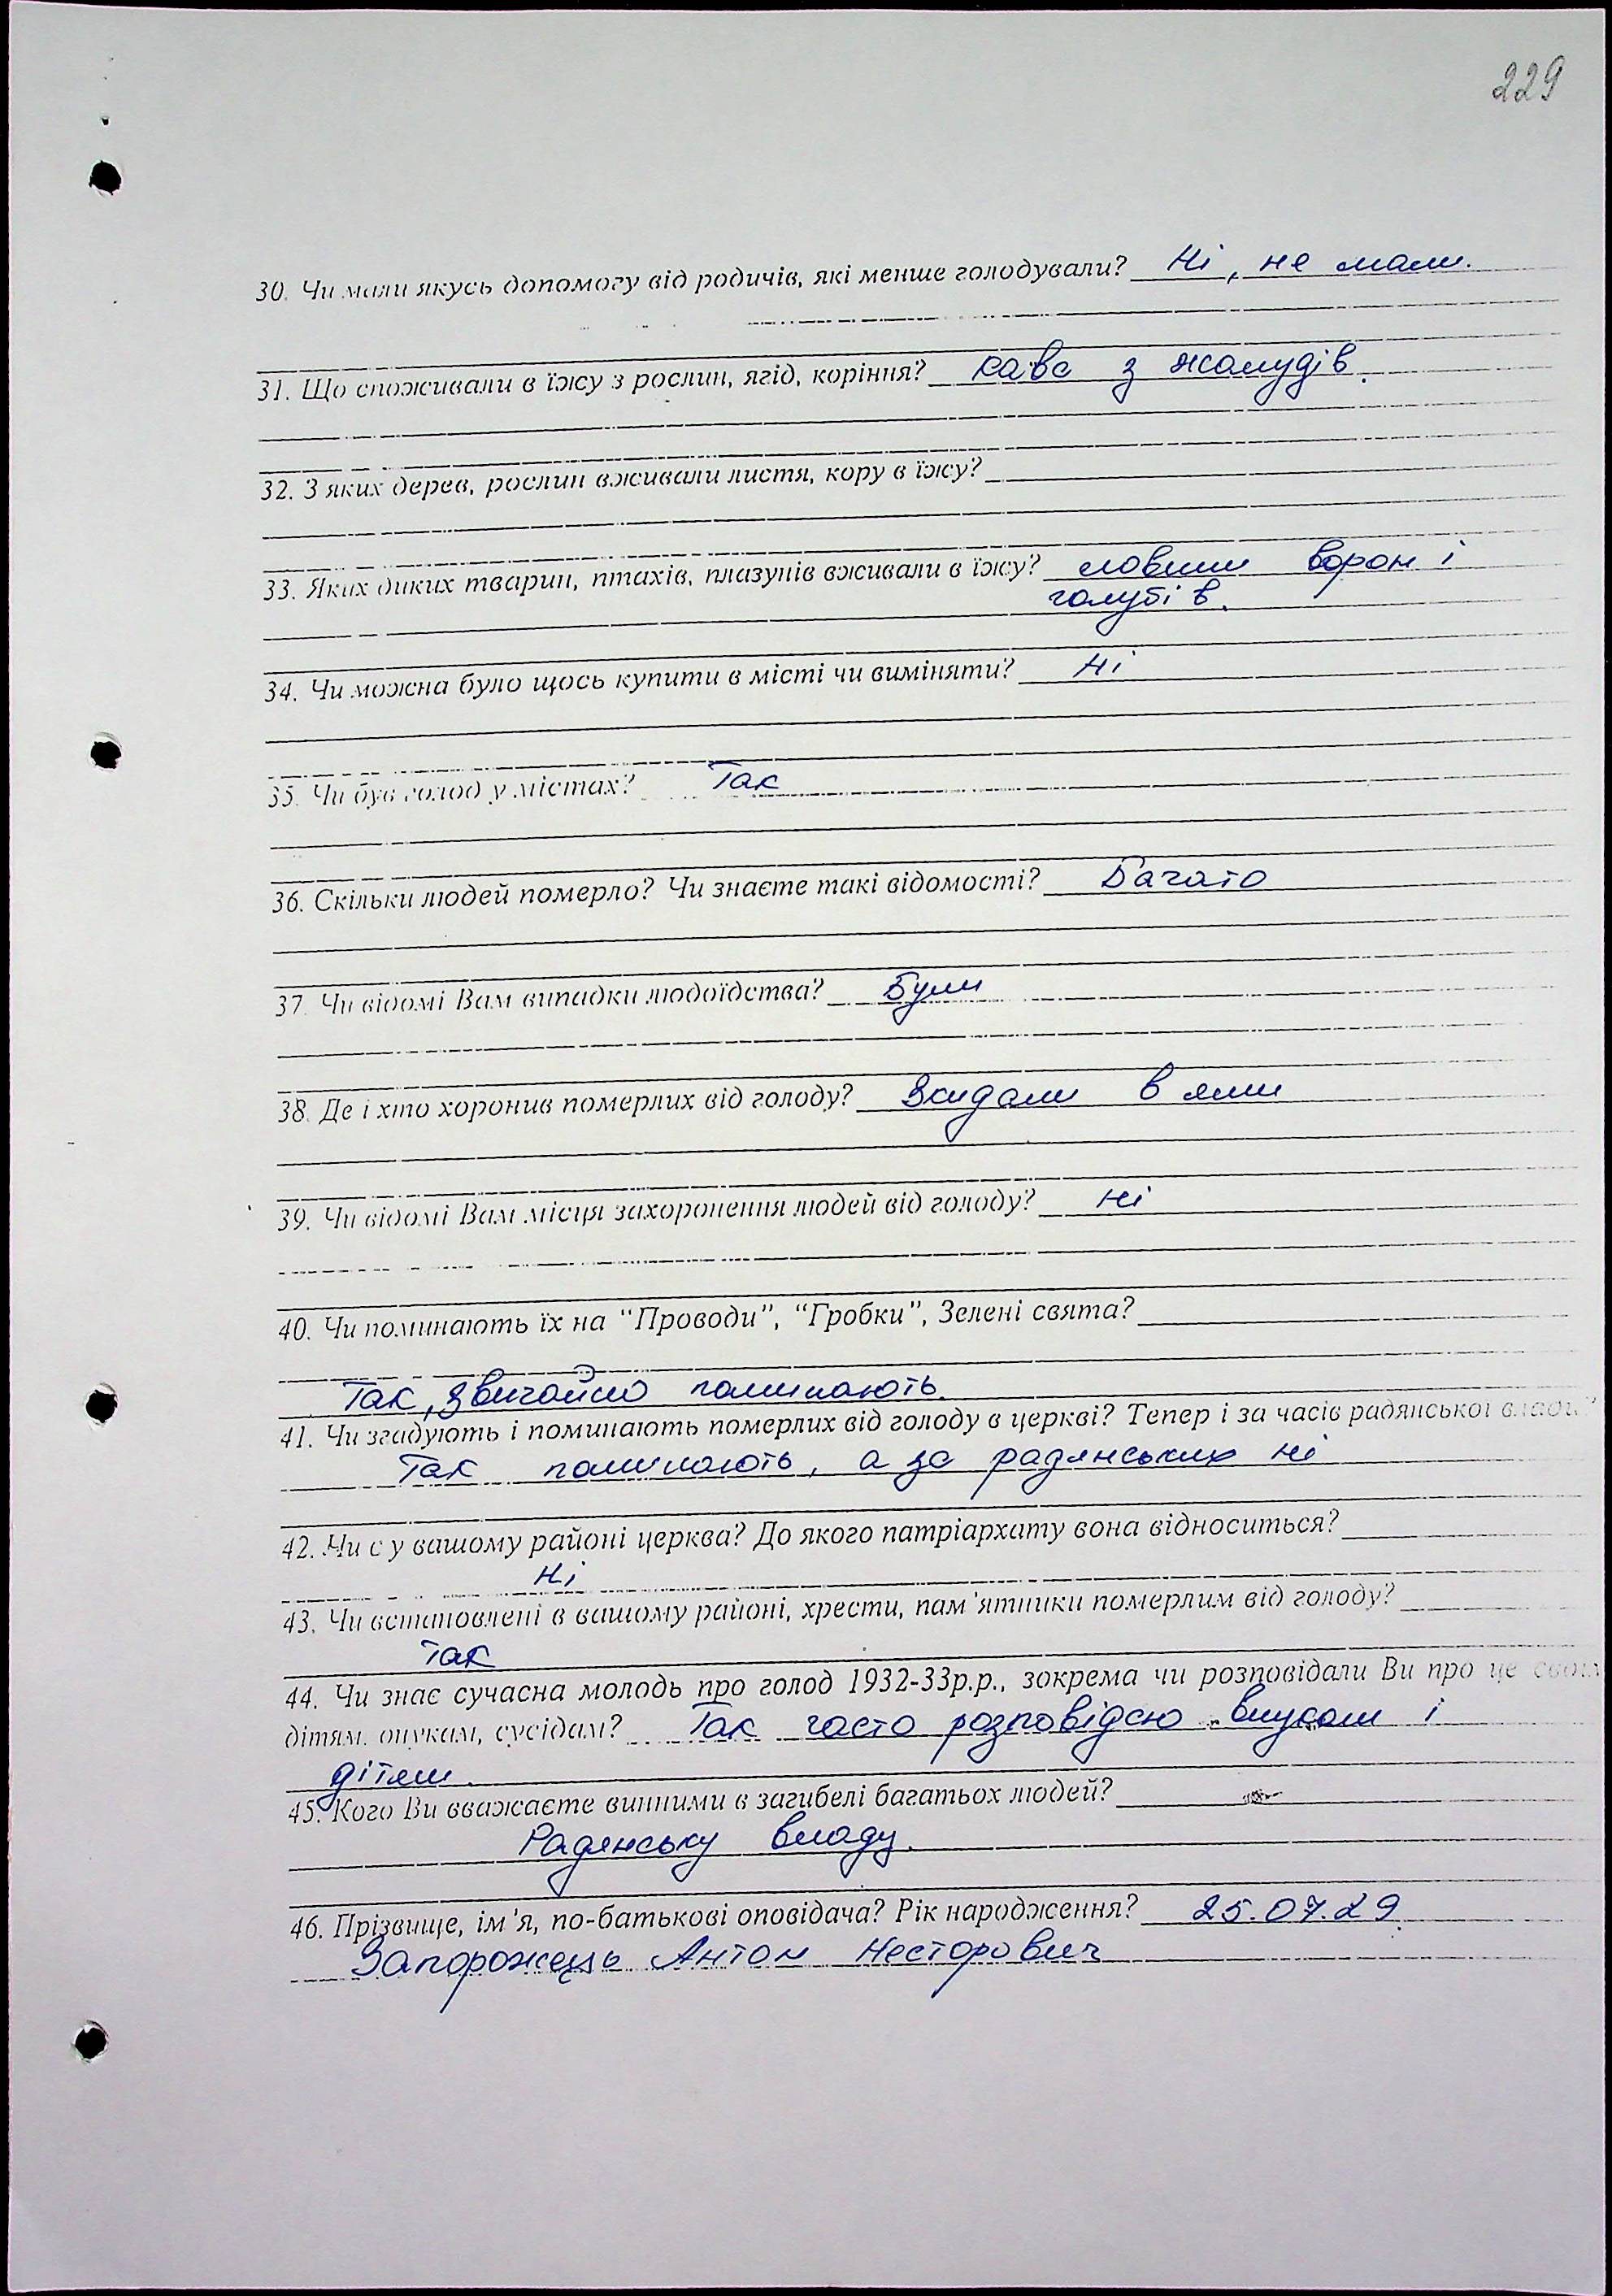 229
30. Чи мали якусь допомогу від родичів, які менше голодували? Ні, не мали.
31. Що споживали в їжу з рослин, ягід, коріння? кава з жолудів.
32. З яких дерев, рослин вживали листя, кору в їжу?
33. Яких диких тварин, птахів, плазунів вживали в їжу? ловили ворон і
голубів.
34. Чи можна було щось купити в місті чи виміняти? Ні
35. Чи був голод у містах? Так
36. Скільки людей померло? Чи знаєте такі відомості? Багато
37. Чи відомі Вам випадки людоїдства? Були
38. Де і хто хоронив померлих від голоду? Вкидали в ями
39. Чи відомі Вам місця захоронення людей від голоду? Ні
40. Чи поминають їх на “Проводи”, “Гробки”, Зелені свята?
Так, звичайно поминають.
41. Чи згадують і поминають померлих від голоду в церкві? Тепер і за часів радянської влади?
Так поминають, а за радянських ні
42. Чи є у вашому районі церква? До якого патріархату вона відноситься?
Ні
43. Чи встановлені в вашому районі, хрести, пам'ятники померлим від голоду?
Так
44. Чи знає сучасна молодь про голод 1932-33р.р., зокрема чи розповідали Ви про це своїм
дітям, онукам, сусідам? Так часто розповідаю внукам і
дітям.
45. Кого Ви вважаєте винними в загибелі багатьох людей?
Радянську владу.
46. Прізвище, ім'я, по-батькові оповідача? Рік народження? 25.07.29.
Запорожець Антон Несторович